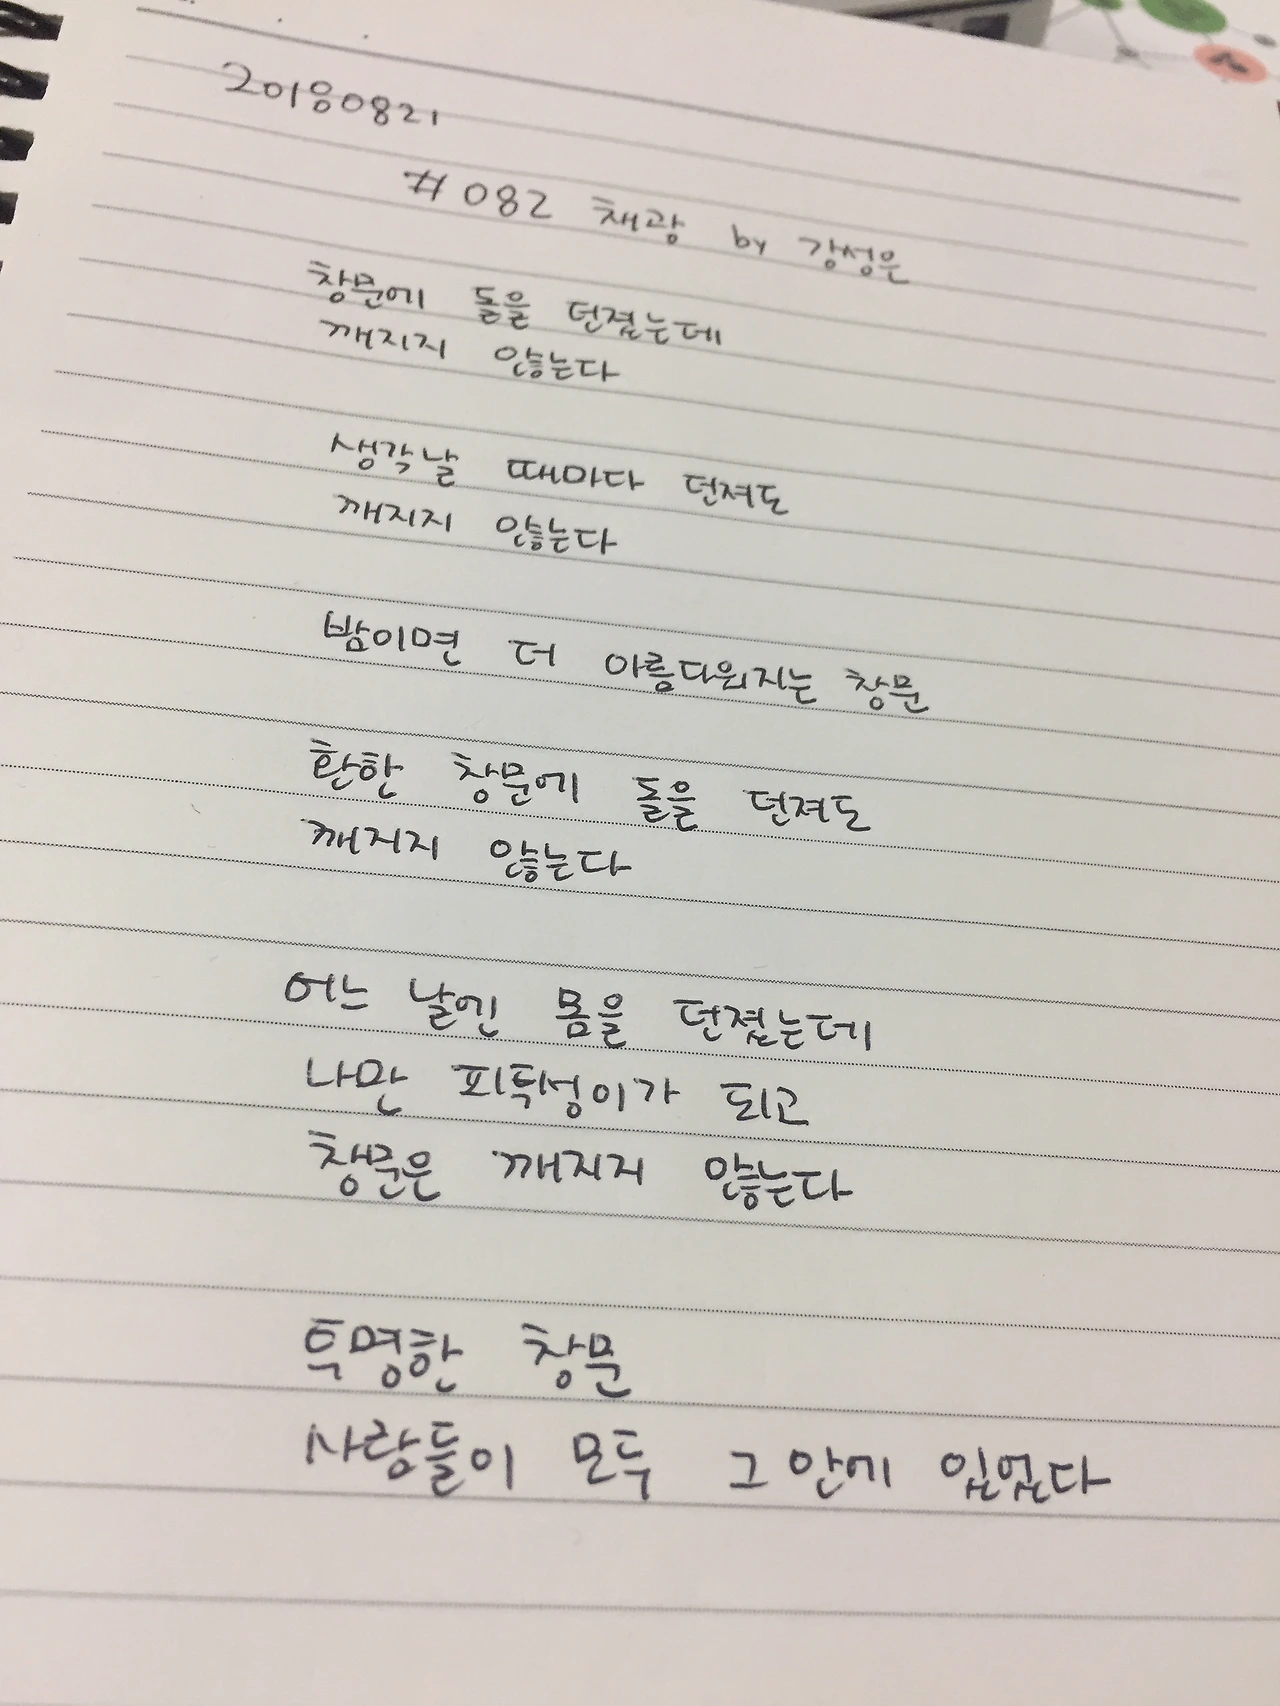 20180821
#082 채광 by 강성은
창문에 돌을 던졌는데
깨지지 않는다
생각날 때마다 던져도
깨지지 않는다
밤이면 더 아름다워지는 창문
환한 창문에 돌을 던져도
깨지지 않는다
어느 날엔 몸을 던졌는데
나만 피투성이가 되고
창문은 깨지지 않는다
투명한 창문
사람들이 모두 그 안에 있었다